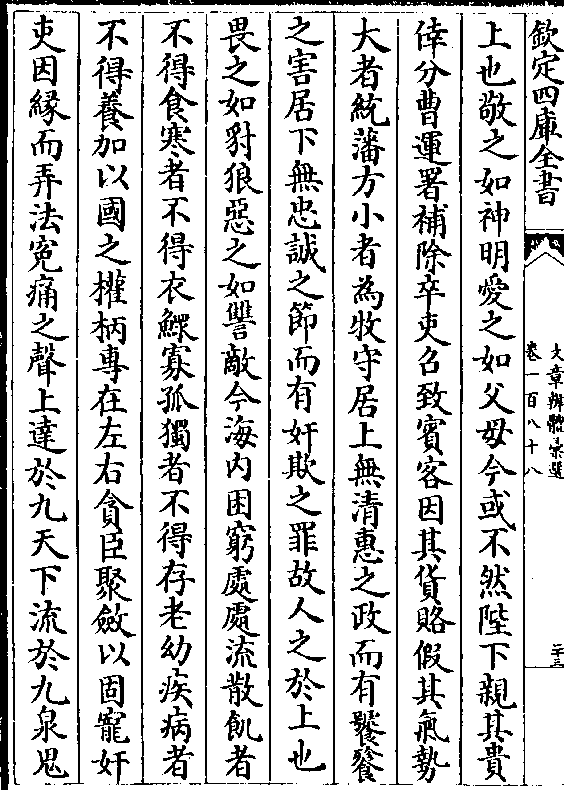 欽定四庫全書
文章辨體彙選
卷一百八十八
二十三
上也敬之如神明愛之如父母今或不然陛下親其貴
倖分曹運署補除卒吏召致賓客因其貨賂假其氣勢
大者統藩方小者為牧守居上無清惠之政而有饕餮
之害居下無忠誠之節而有奸欺之罪故人之於上也
畏之如豺狼惡之如讐敵今海内困窮處處流散飢者
不得食寒者不得衣鰥寡孤獨者不得存老幼疾病者
不得養加以國之權柄専在左右貪臣聚斂以固寵奸
吏因緣而弄法寃痛之聲上達於九天下流於九泉鬼